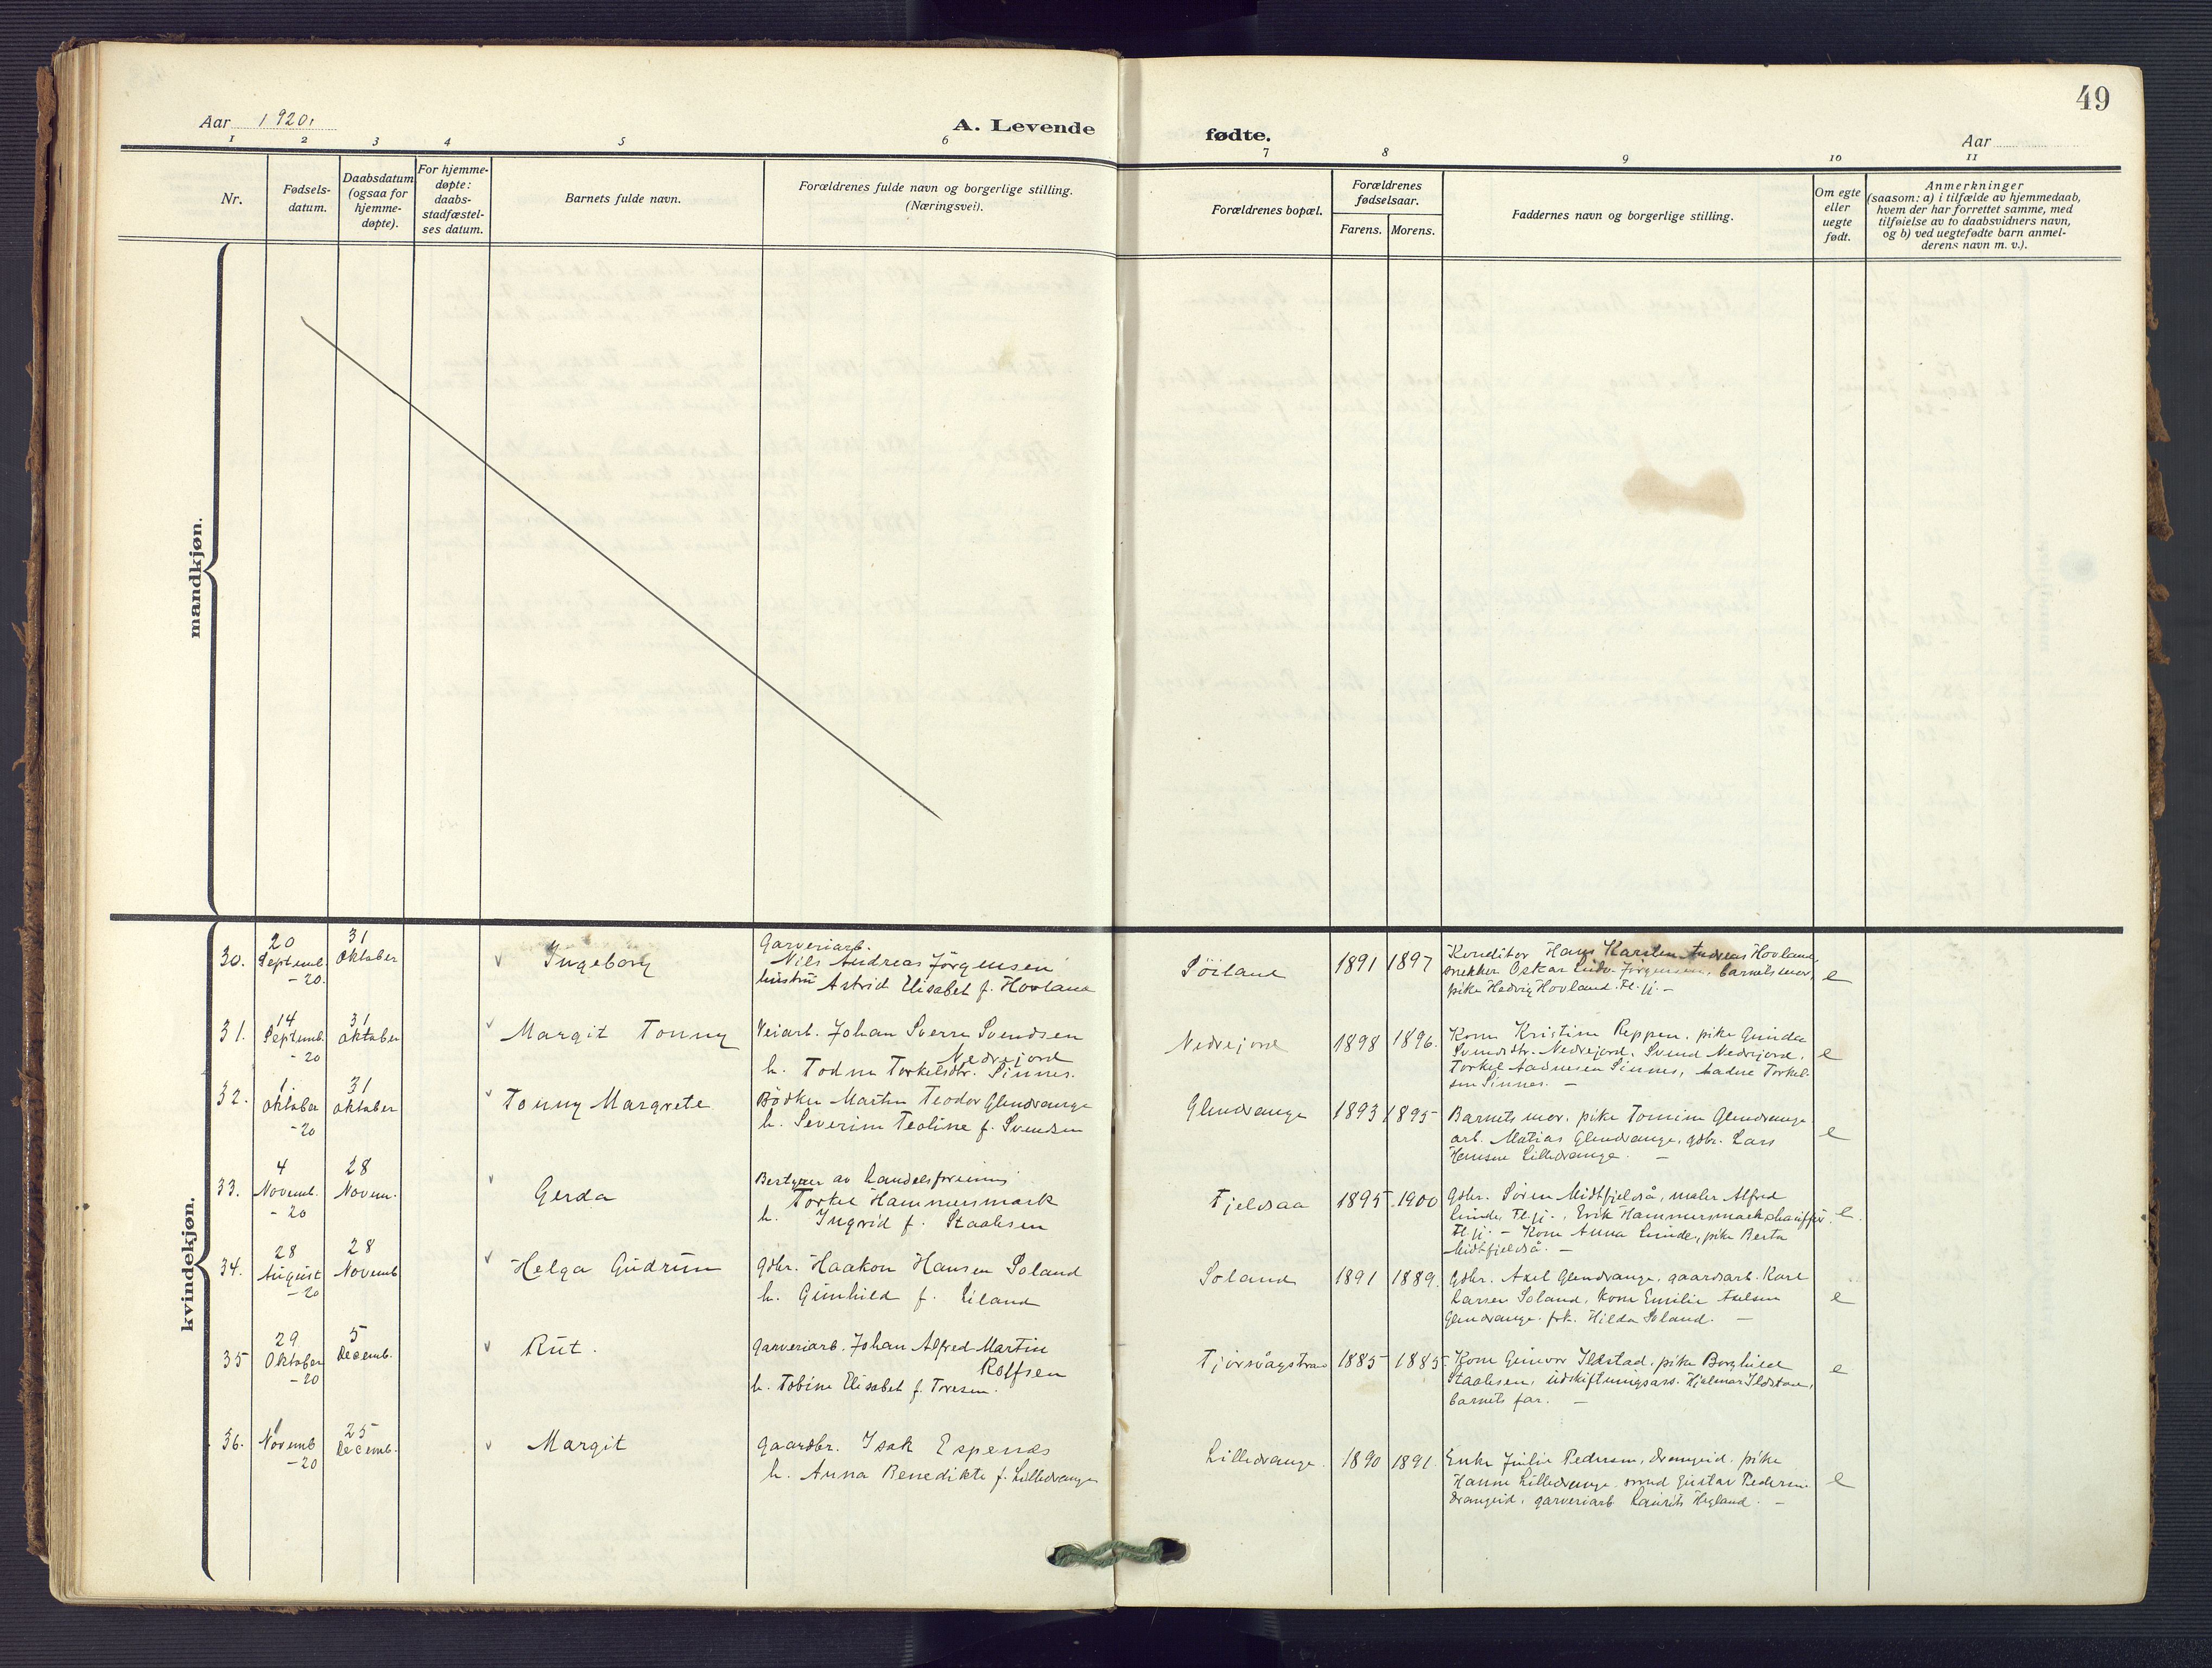 49
Aar 1920.
A. Levende fødte.
Aar
1 2 3 4 5 6 7 8 9 10 11
Nr.
Fødsels-
datum.
Daabsdatum
(ogsaa for
hjemme-
døpte).
For hjemme-
døpte:
daabs-
stadfæstel-
ses datum.
Barnets fulde navn.
Forældrenes fulde navn og borgerlige stilling.
(Næringsvei).
Forældrenes bopæl.
Forældrenes
fødselsaar.
Farens. Morens.
Faddernes navn og borgerlige stilling.
Om egte
eller
uegte
født.
Anmerkninger
(saasom: a) i tilfælde av hjemmedaab,
hvem der har forrettet samme, med
tilføielse av to daabsvidners navn,
og b) ved uegtefødte barn anmel-
derens navn m. v.).
mandkjøn.
kvindekjøn.
30.
20
Septemb.
-20.
31
Oktober
Ingeborg
Garveriarb.
Nils Andreas Jörgensen
hustru Astrid Elisabet f. Hovland
1891 1897
Konditor Hans Karsten Andreas Hovland,
snekker Oskar Ludv. Jörgensen, barnets mor,
pike Hedvig Hovland. Fl. jj. -
e
31.
14
Septemb.
-20
31
Oktober
Margit Tonny
Veiarb. Johan Sverre Svendsen
Nedrejord
h. Todne Torkelsdtr. Sinnes.
Nedrejord
1898 1896.
Kone Kristine Reppen, pike Gunda
Svendsdtr. Nedrejord, Svend Nedrejord,
Torkel Aadnesen Sinnes, Aadne Torkel-
sen Sinnes. -
e
32.
1.
Oktober
-20
31
Oktober
Tonny Margrete
Bödker Martin Teodor Glendrange
h. Severine Teoline f. Svendsen
Glendrange
1893 1895
Barnets mor, pike Tomine Glendrange
arb. Matias Glendrange, gbr. Lars
Hansen Lilledrange. -
e
33.
4
Novemb.
-20
28
Novem.
Gerda
Bestyrer av handelsforening
Torkel Hammersmark
h. Ingrid f. Staalesen
Fjeldsaa
1895 1900
Gbr. Sören Midtfjeldså, maler Alfred
Lunde, Fl. jj., Erik Hammersmark, chauffør
Fl. jj. - Kone Anna Lunde, pike Berta
Midtfjeldså. -
e.
34.
28
August
-20
28
Novemb
Helga Gudrun
Gbr. Haakon Hansen Soland
h. Gunhild f. Eiland
Soland
1891 1889.
Gbr. Axel Glendrange, gaardarb. Karl
Larsen Soland, kone Emilie Axelsen
Glendrange, frk. Hilda Soland. -
e
35
29
Oktober
-20
5
Decemb.
Rut.
Garveriarb. Johan Alfred Martin
Rolfsen
h. Tobine Elisabet f. Toresen.
1885 1885
Kone Gunvor Ildstad, pike Borghild
Staalesen, utskiftningsass. Hjalmar Ildstad,
barnets far. -
e
36.
1
Novemb
-20
25
Decemb.
Margit
Gaardbr. Isak Espenes
h. Anna Benedikte f. Lilledrange
Lilledrange.
1890 1891.
Enke Julie Pedersen, Drangeid, pike
Hanne Lilledrange, smed Gustav Pedersen
Drangeid, garveriarb Laurits Hegland. -
e